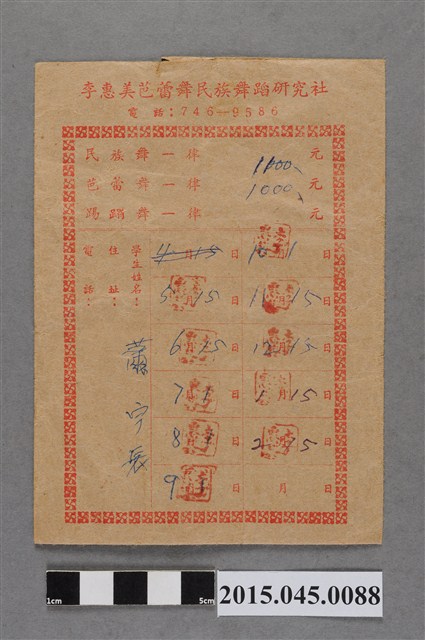 李惠美芭蕾舞民族舞蹈研究社
電話：746-9586
民族舞一律 1100、元
芭蕾舞一律 1000、元
踢踏舞一律 元
學生姓名： 蕭宇辰
住址：
電話：
4月15日 10月1日
5月15日 11月15日
6月15日 12月15日
7月1日 1月15日
8月日 2月5日
9月1日 月日
1cm 5cm
2015.045.0088